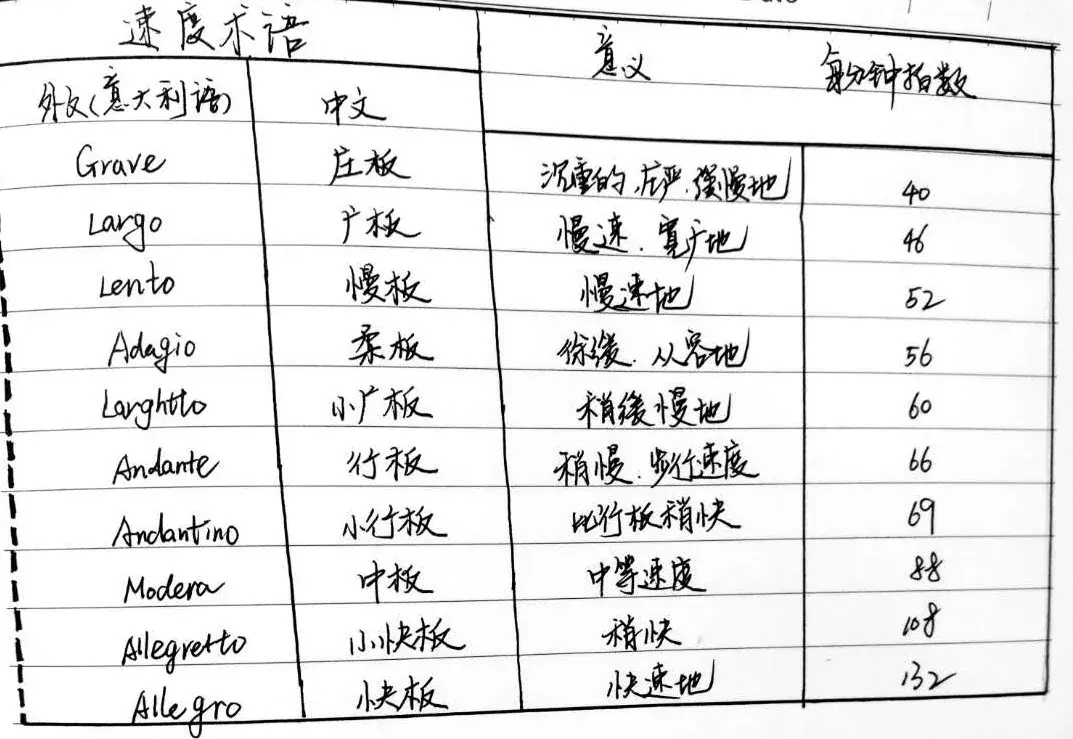 速度术语 意义 每分钟拍数
外文(意大利语) 中文
Grave 庄板 沉重的.庄严.缓慢地 40
Largo 广板 慢速.宽广地 46
Lento 慢板 慢速地 52
Adagio 柔板 徐缓.从容地 56
Larghtto 小广板 稍缓慢地 60
Andante 行板 稍慢.步行速度 66
Andantino 小行板 比行板稍快 69
Modera 中板 中等速度 88
Allegretto 小快板 稍快 108
Allegro 快板 快速地 132